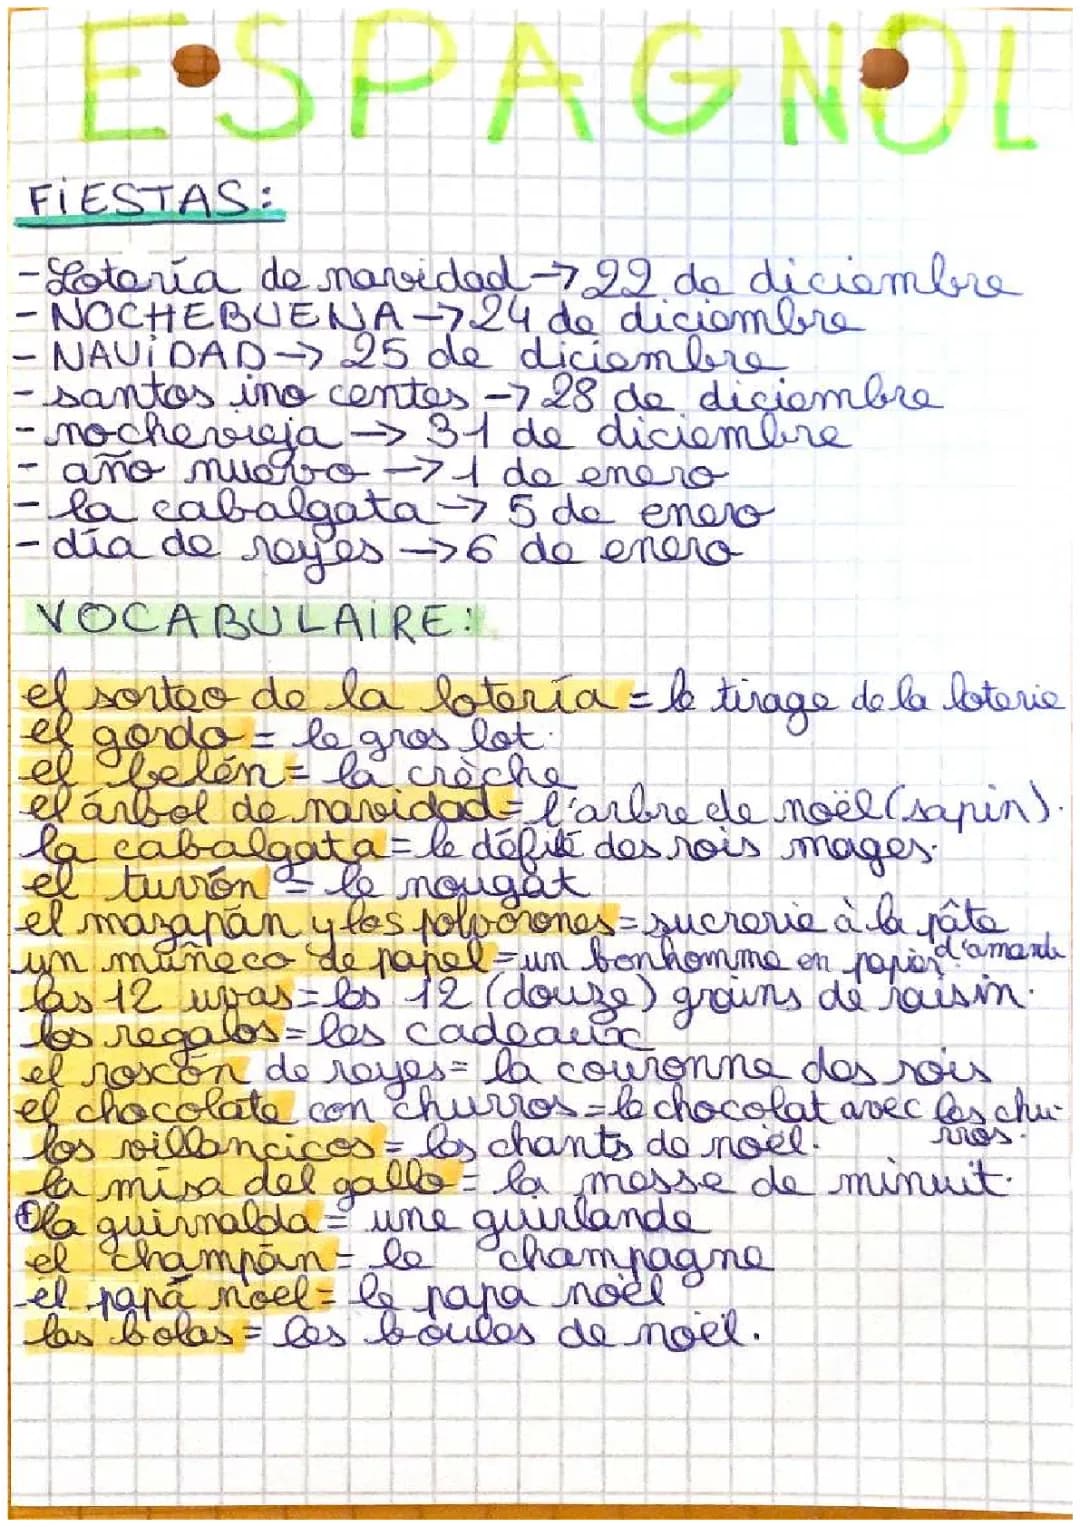 ESPAGNOL
FiESTAS:
- Lotería de navidad → 22 de diciembre
- NOCHEBUENA → 24 de diciembre
- NAViDAD → 25 de diciembre
- santos ino centes → 28 de diciembre
- nochevieja → 31 de diciembre
- año nuevo → 1 de enero
- la cabalgata → 5 de enero
- día de reyes → 6 de enero
VOCABULAiRE:
el sorteo de la lotería = le tirage de la loterie
el gordo = le gros lot.
el belén = la crèche
el árbol de navidad = l'arbre de noël (sapin).
la cabalgata = le défilé des rois mages.
el turrón = le nougat
el mazapán y los polvorones = sucrerie à la pâte
d'amande
un muñeco de papel = un bonhomme en papier
las 12 uvas = les 12 (douze) grains de raisin.
los regalos = les cadeaux
el roscón de reyes = la couronne des rois
el chocolate con churros = le chocolat avec les chu-
rros.
los villancicos = les chants de noël.
la misa del gallo = la messe de minuit.
+ la guirnalda = une guirlande
el champán = le champagne
el papá noel = le papa noël
las bolas = les boules de noël.